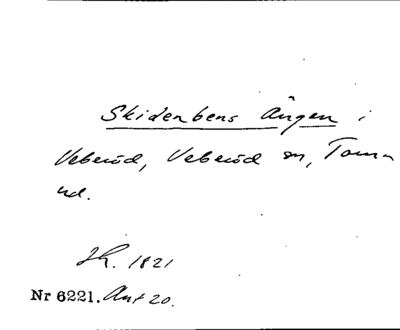 Skidenbens Ängen i
Veberöd, Veberöd sn, Torna
hd.
Jh. 1821
Nr 6221. Ant 20.